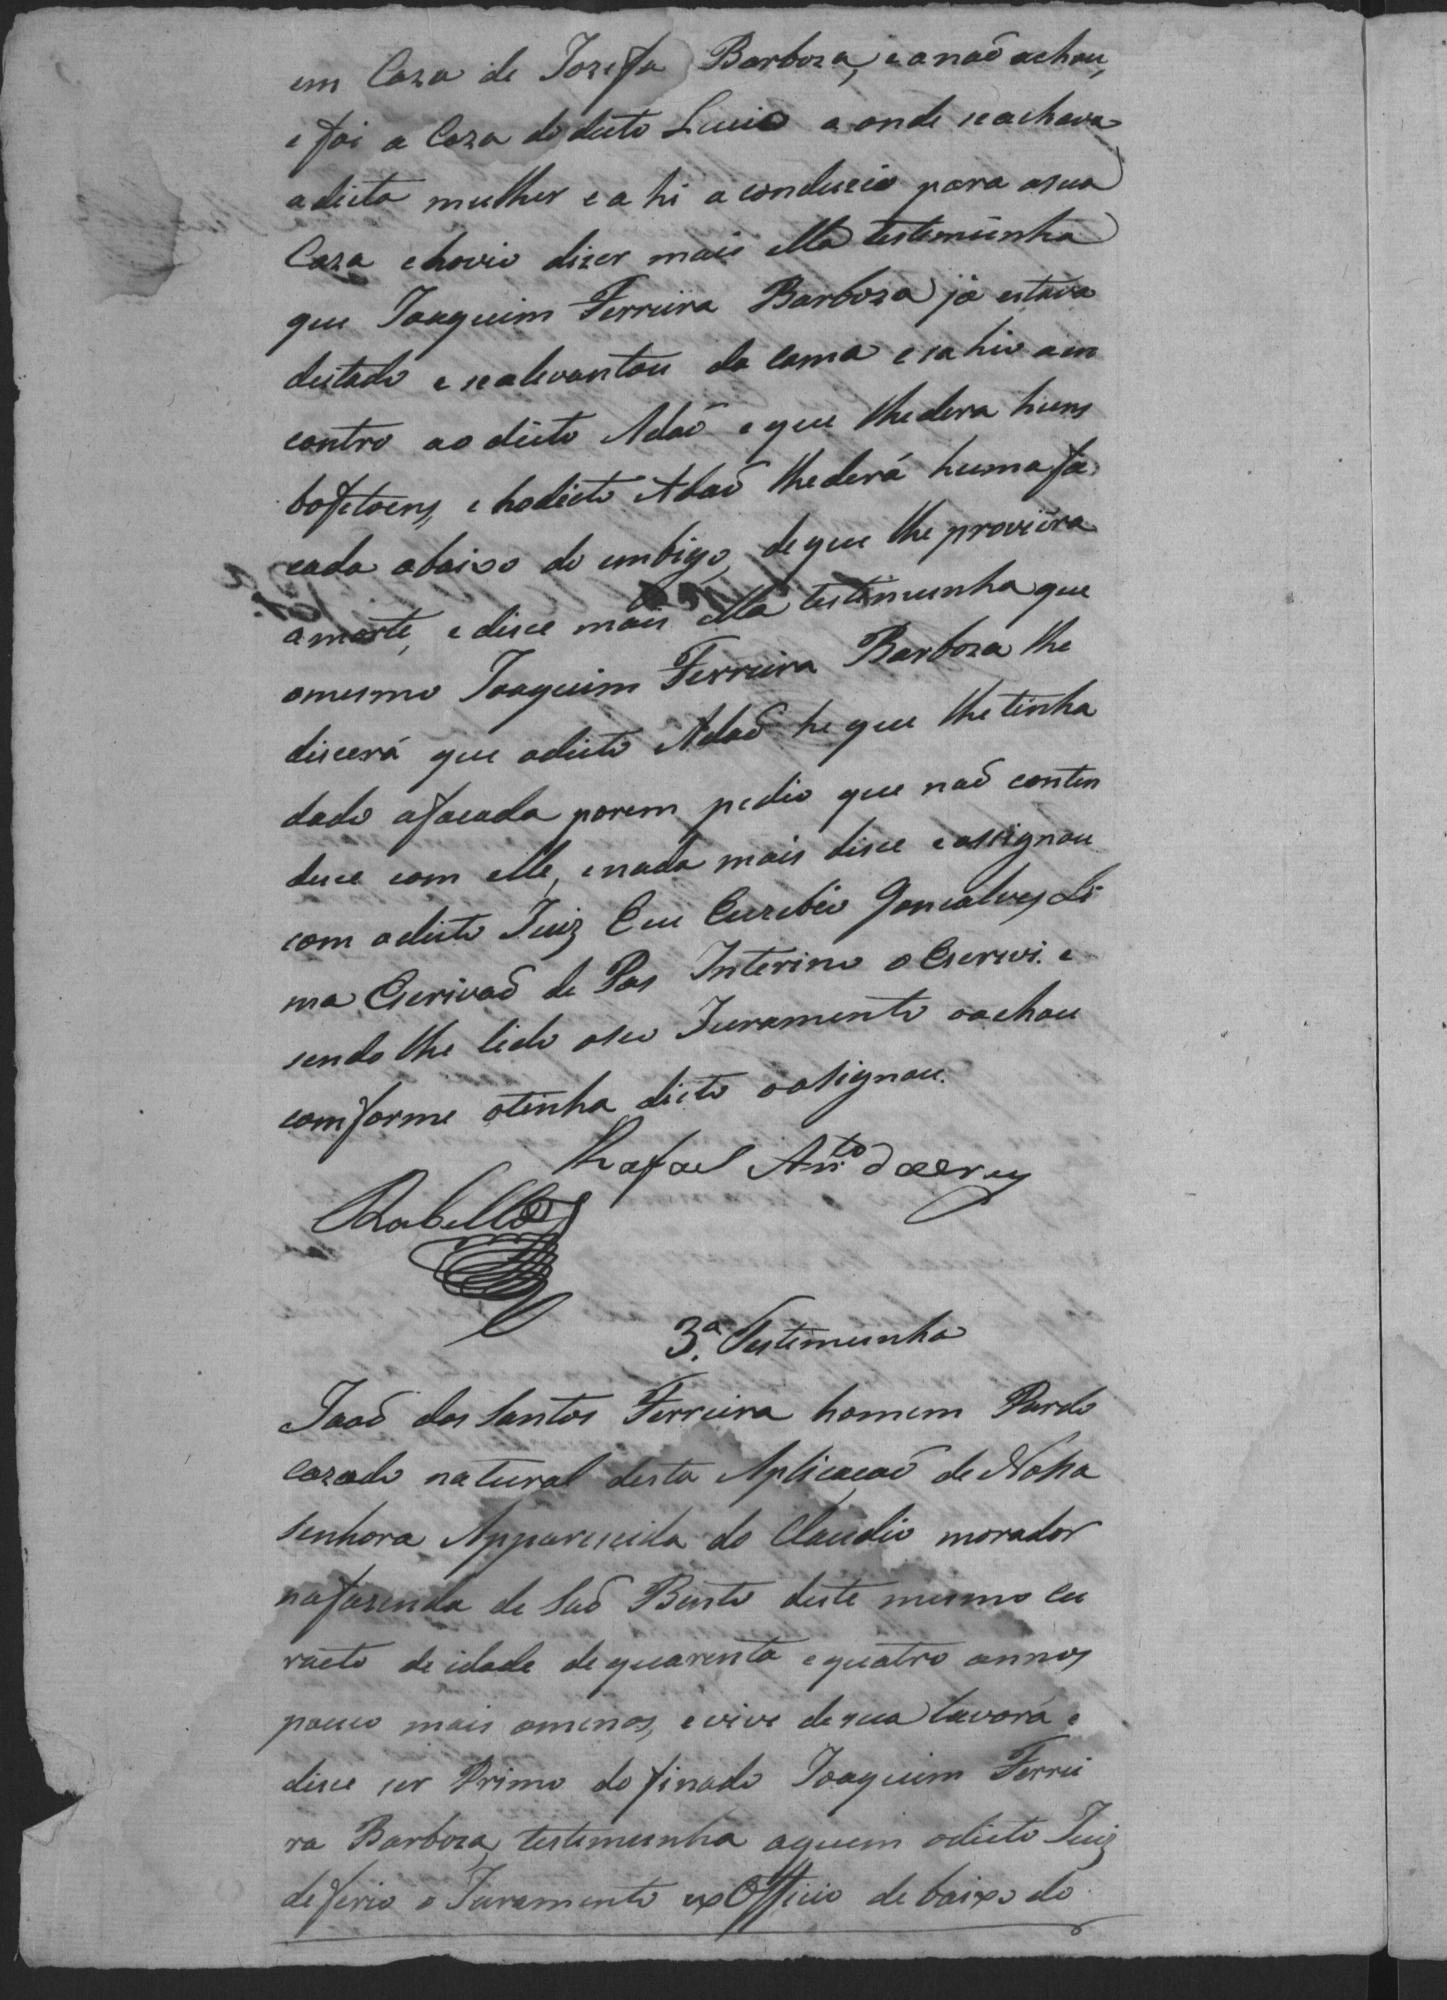 em Caza de Jozefa Barboza, e anaõ achou,
e foi a Caza do dicto Lucio a onde se achava
a dicta mulher e a hi a conducio para a sua
Caza e hovio dizer mais ella testemunha
que Joaquim Ferreira Barboza já estava
deitado e sealevantou da cama e sahio a en
contro ao dicto Adaõ e que lhe dera huns
bofetoens, e ho dicto Adaõ lhe derá huma fa
cada abaixo do umbigo, de que lhe proviera
amorte, e disce mais ella testimunha que
omesmo Joaquim Ferreira Barboza lhe
discerá que odicto Adaõ he que lhe tinha
dado afacada porem pedio que naõ conten
dece com elle, enada mais disce e assignou
com odicto Juiz Eu Euzebio Gonsalves Li
ma Escrivaõ de Pas Interino o Escrivi. e
sendo lhe lido oseo Juramento oachou
comforme otinha dicto oasignou.
Rafael Anto
Rabello
3.ª Testimunha
Joaõ dos Santos Ferreira homem Pardo
cazado natural desta Aplicaçaõ de Nossa
Senhora Apparecida do Claudio morador
nafazenda de Saõ Bento deste mesmo Cu
racto de idade de quarenta e quatro annos
pouco mais omenos, e vive de sua lavora e
disce ser Primo do finado Joaquim Ferrei
ra Barboza, testemunha aquem odicto Juiz
deferio o Juramento exOfficio de baixo do